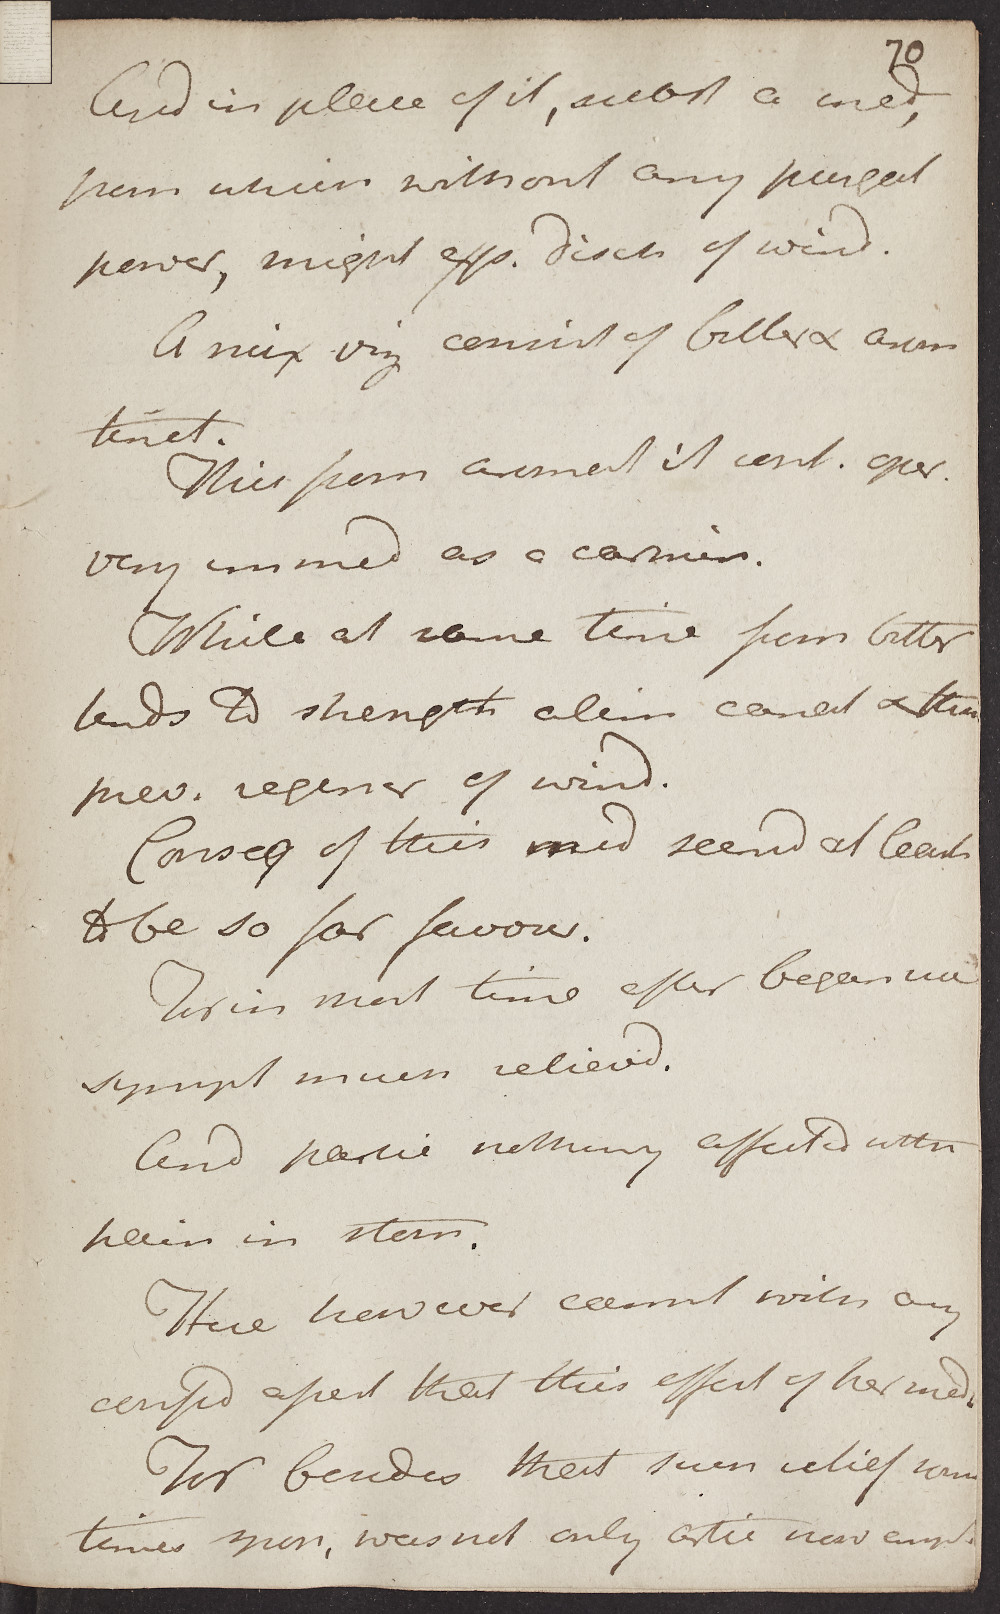 70
And in place of it, subst a med,
from which without any purgat
power, might exp. disch of wind.
A mix viz consist of bitter & arom
tinct.
This from aromat it cont. oper.
very immed as a carmin.
While at same time from bitter
tends to strength alim canal & thus
prev. regener of wind.
Conseq of this med seemd at least
to be so far favour.
For in short time after began use
sympt much relievd.
And partic nothing affected with
pain in stom.
Here however cannot with any
confid assert that this effect of her med.
For besides that such relief some
times spon, was not only artic now empl.